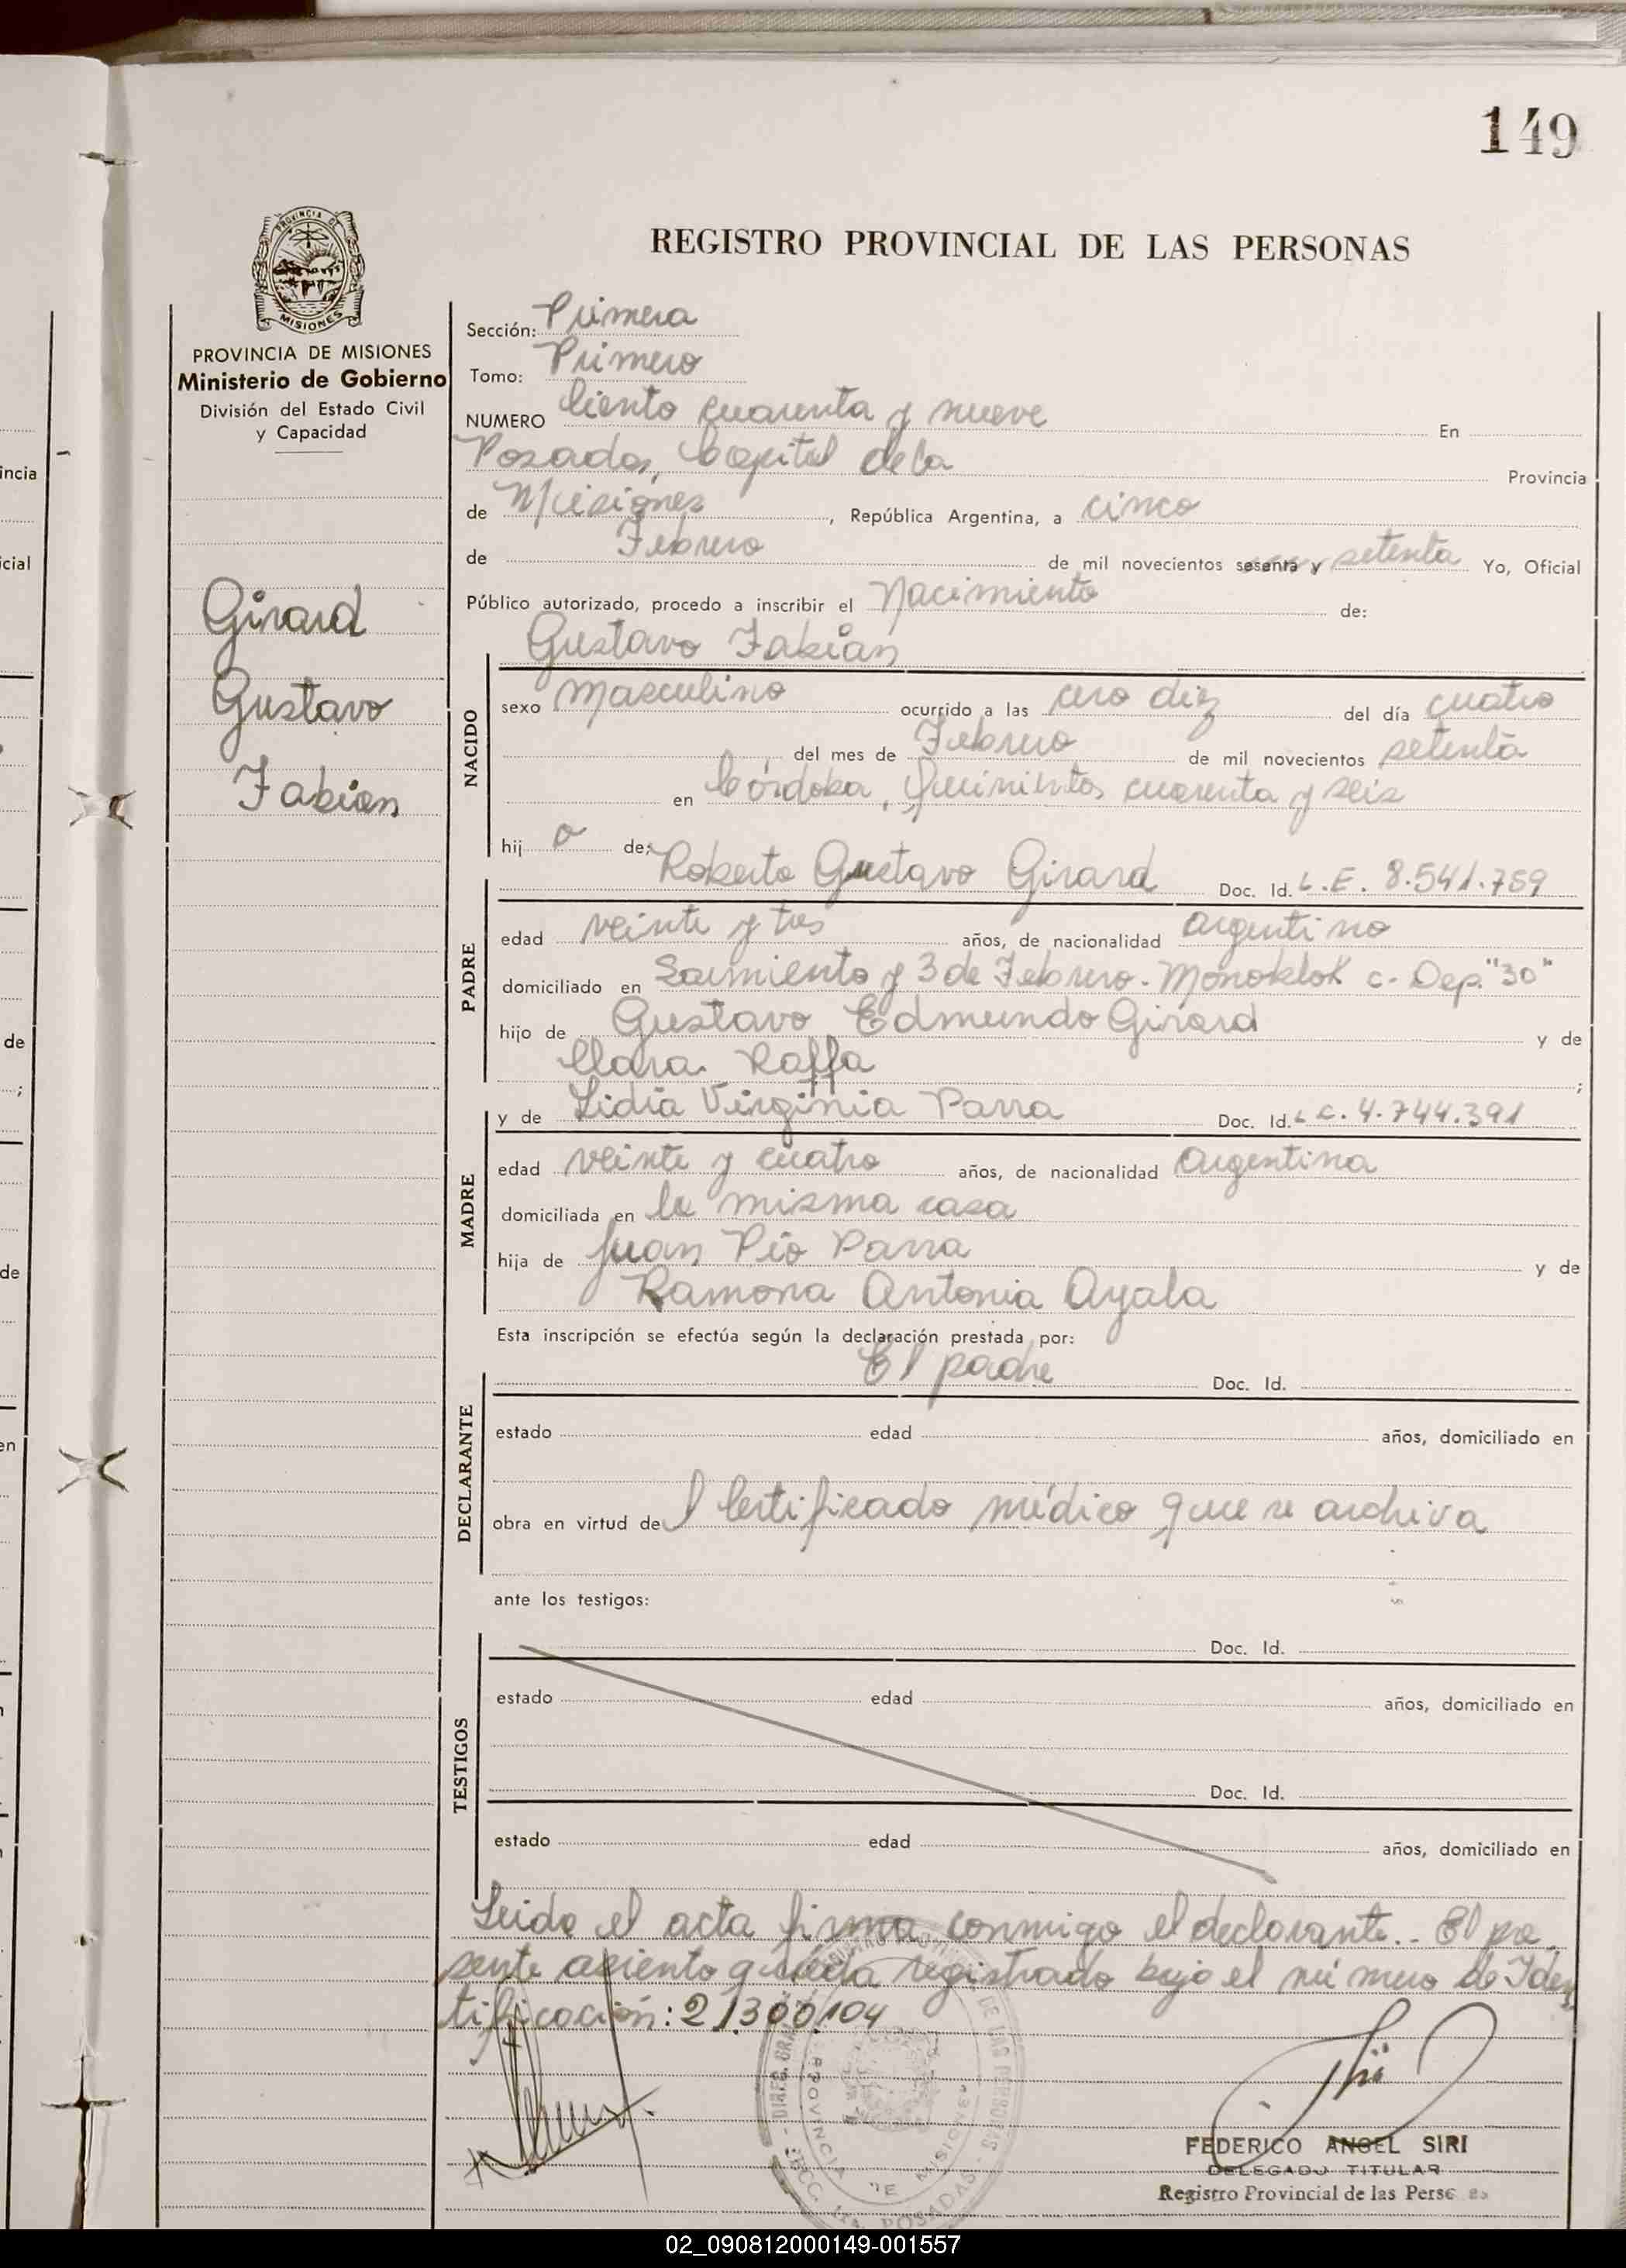 149
REGISTRO PROVINCIAL DE LAS PERSONAS
PROVINCIA DE
MISIONES
PROVINCIA DE MISIONES
Ministerio de Gobierno
División del Estado Civil
y Capacidad
Girard
Gustavo
Fabian
Sección: Primera
Tomo: Primero
NUMERO Ciento cuarenta y nueve En
Posadas, Capital de la Provincia
de Misiones, República Argentina, a cinco
de Febrero de mil novecientos sesenta y setenta Yo, Oficial
Público autorizado, procedo a inscribir el Nacimiento de:
Gustavo Fabián
NACIDO
sexo masculino ocurrido a las cero diez del día cuatro
del mes de Febrero de mil novecientos setenta
en Córdoba, Quinientos cuarenta y seis
hij o de: Roberto Gustavo Girard Doc. Id. L.E. 8.541.759
PADRE
edad veinte y tres años, de nacionalidad argentino
domiciliado en Sarmiento y 3 de Febrero. Monoblok c. Dep. "30"
hijo de Gustavo Edmundo Girard y de
Clara Raffa ;
y de Lidia Virginia Parra Doc. Id. L C. 4.744.391
MADRE
edad veinte y cuatro años, de nacionalidad Argentina
domiciliada en la misma casa
hija de Juan Pío Parra y de
Ramona Antonia Ayala
Esta inscripción se efectúa según la declaración prestada por:
El padre Doc. Id.
DECLARANTE
estado edad años, domiciliado en
obra en virtud del Certificado médico que se archiva
ante los testigos:
Doc. Id.
TESTIGOS
estado edad años, domiciliado en
Doc. Id.
estado edad años, domiciliado en
Leida el acta firma conmigo el declarante.. El pre
sente asiento queda registrado bajo el número de Iden
tificación: 21300104
DE LAS PERSONAS
PROVINCIA DE MISIONES
POSADAS
FEDERICO ANGEL SIRI
DELEGADO TITULAR
Registro Provincial de las Perso as
02_090812000149-001557
incia
icial
de
;
de
en